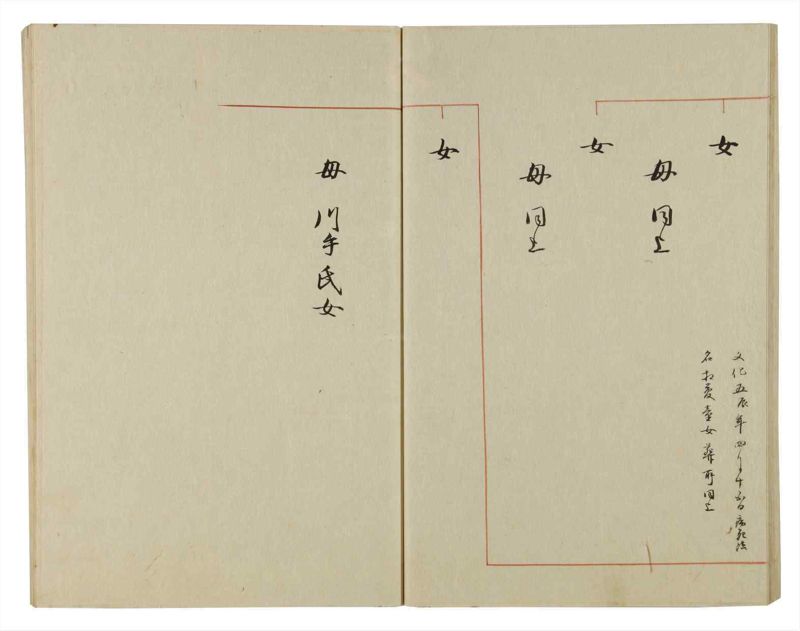 女
文化五辰年四月十五日病死法
名玅夏童女葬所同上
母同上
女
母同上
女
母川手氏女